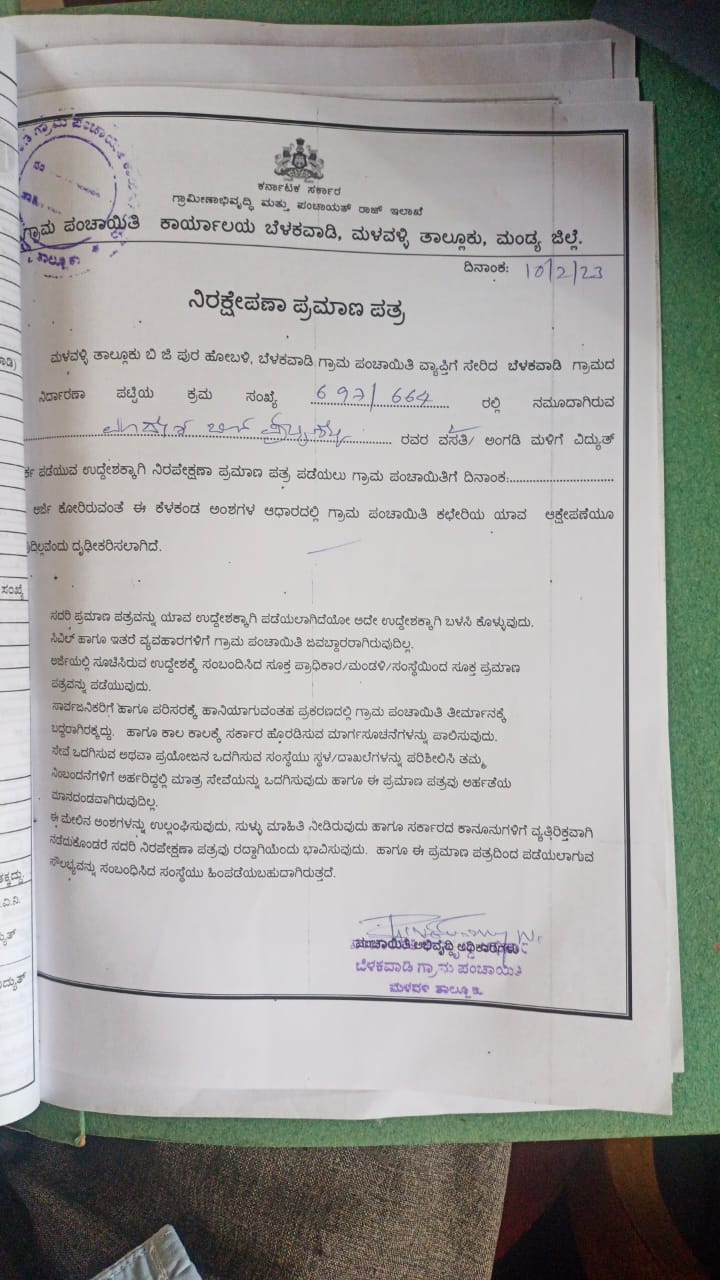 ಗ್ರಾಮ ಪಂಚಾಯಿತಿ
ಕರ್ನಾಟಕ ಸರ್ಕಾರ
ಗ್ರಾಮೀಣಾಭಿವೃದ್ಧಿ ಮತ್ತು ಪಂಚಾಯತ್ ರಾಜ್ ಇಲಾಖೆ
ಗ್ರಾಮ ಪಂಚಾಯಿತಿ ಕಾರ್ಯಾಲಯ ಬೆಳಕವಾಡಿ, ಮಳವಳ್ಳಿ ತಾಲ್ಲೂಕು, ಮಂಡ್ಯ ಜಿಲ್ಲೆ.
ದಿನಾಂಕ: 10/2/23
ನಿರಕ್ಷೇಪಣಾ ಪ್ರಮಾಣ ಪತ್ರ
ಮಳವಳ್ಳಿ ತಾಲ್ಲೂಕು ಬಿ ಜಿ ಪುರ ಹೋಬಳಿ, ಬೆಳಕವಾಡಿ ಗ್ರಾಮ ಪಂಚಾಯಿತಿ ವ್ಯಾಪ್ತಿಗೆ ಸೇರಿದ ಬೆಳಕವಾಡಿ ಗ್ರಾಮದ
ನಿರ್ದಾರಣಾ ಪಟ್ಟಿಯ ಕ್ರಮ ಸಂಖ್ಯೆ 697/664 ರಲ್ಲಿ ನಮೂದಾಗಿರುವ
ರವರ ವಸತಿ/ ಅಂಗಡಿ ಮಳಿಗೆ ವಿದ್ಯುತ್
ಪಡೆಯುವ ಉದ್ದೇಶಕ್ಕಾಗಿ ನಿರಪೇಕ್ಷಣಾ ಪ್ರಮಾಣ ಪತ್ರ ಪಡೆಯಲು ಗ್ರಾಮ ಪಂಚಾಯಿತಿಗೆ ದಿನಾಂಕ:..............................
ಅರ್ಜಿ ಕೋರಿರುವಂತೆ ಈ ಕೆಳಕಂಡ ಅಂಶಗಳ ಆಧಾರದಲ್ಲಿ ಗ್ರಾಮ ಪಂಚಾಯಿತಿ ಕಛೇರಿಯ ಯಾವ ಆಕ್ಷೇಪಣೆಯೂ
ದಿಲ್ಲವೆಂದು ದೃಢೀಕರಿಸಲಾಗಿದೆ.
ಸದರಿ ಪ್ರಮಾಣ ಪತ್ರವನ್ನು ಯಾವ ಉದ್ದೇಶಕ್ಕಾಗಿ ಪಡೆಯಲಾಗಿದೆಯೋ ಅದೇ ಉದ್ದೇಶಕ್ಕಾಗಿ ಬಳಸಿ ಕೊಳ್ಳುವುದು.
ಸಿವಿಲ್ ಹಾಗೂ ಇತರೆ ವ್ಯವಹಾರಗಳಿಗೆ ಗ್ರಾಮ ಪಂಚಾಯಿತಿ ಜವಬ್ದಾರರಾಗಿರುವುದಿಲ್ಲ.
ಅರ್ಜಿಯಲ್ಲಿ ಸೂಚಿಸಿರುವ ಉದ್ದೇಶಕ್ಕೆ ಸಂಬಂದಿಸಿದ ಸೂಕ್ತ ಪ್ರಾಧಿಕಾರ/ಮಂಡಳಿ/ಸಂಸ್ಥೆಯಿಂದ ಸೂಕ್ತ ಪ್ರಮಾಣ
ಪತ್ರವನ್ನು ಪಡೆಯುವುದು.
ಸಾರ್ವಜನಿಕರಿಗೆ ಹಾಗೂ ಪರಿಸರಕ್ಕೆ ಹಾನಿಯಾಗುವಂತಹ ಪ್ರಕರಣದಲ್ಲಿ ಗ್ರಾಮ ಪಂಚಾಯಿತಿ ತೀರ್ಮಾನಕ್ಕೆ
ಬದ್ಧರಾಗಿರಕ್ಕದ್ದು. ಹಾಗೂ ಕಾಲ ಕಾಲಕ್ಕೆ ಸರ್ಕಾರ ಹೊರಡಿಸುವ ಮಾರ್ಗಸೂಚನೆಗಳನ್ನು ಪಾಲಿಸುವುದು.
ಸೇವೆ ಒದಗಿಸುವ ಅಥವಾ ಪ್ರಯೋಜನ ಒದಗಿಸುವ ಸಂಸ್ಥೆಯು ಸ್ಥಳ/ದಾಖಲೆಗಳನ್ನು ಪರಿಶೀಲಿಸಿ ತಮ್ಮ
ನಿಂಬಂದನೆಗಳಿಗೆ ಅರ್ಹರಿದ್ದಲ್ಲಿ ಮಾತ್ರ ಸೇವೆಯನ್ನು ಒದಗಿಸುವುದು ಹಾಗೂ ಈ ಪ್ರಮಾಣ ಪತ್ರವು ಅರ್ಹತೆಯ
ಮಾನದಂಡವಾಗಿರುವುದಿಲ್ಲ.
ಈ ಮೇಲಿನ ಅಂಶಗಳನ್ನು ಉಲ್ಲಂಘಿಸುವುದು, ಸುಳ್ಳು ಮಾಹಿತಿ ನೀಡಿರುವುದು ಹಾಗೂ ಸರ್ಕಾರದ ಕಾನೂನುಗಳಿಗೆ ವ್ಯತ್ತಿರಿಕ್ತವಾಗಿ
ನಡೆದುಕೊಂಡರೆ ಸದರಿ ನಿರಪೇಕ್ಷಣಾ ಪತ್ರವು ರದ್ದಾಗಿಯೆಂದು ಭಾವಿಸುವುದು. ಹಾಗೂ ಈ ಪ್ರಮಾಣ ಪತ್ರದಿಂದ ಪಡೆಯಲಾಗುವ
ಸೌಲಭ್ಯವನ್ನು ಸಂಬಂಧಿಸಿದ ಸಂಸ್ಥೆಯು ಹಿಂಪಡೆಯಬಹುದಾಗಿರುತ್ತದೆ.
ಪಂಚಾಯಿತಿ ಅಭಿವೃದ್ಧಿ ಅಧಿಕಾರಿಗಳು
ಬೆಳಕವಾಡಿ ಗ್ರಾಮ ಪಂಚಾಯಿತಿ
ಮಳವಳ್ಳಿ ತಾಲ್ಲೂಕು.